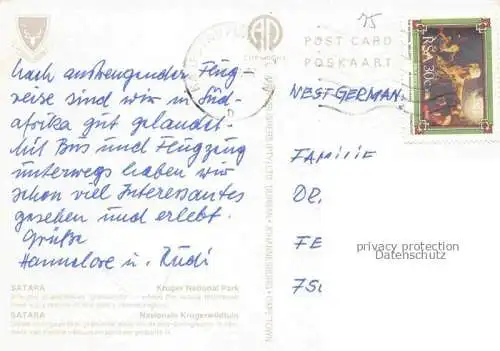 nach anstrengender Flug-
reise sind wir in Süd-
afrika gut gelandet.
Mit Bus und Flugzeug
unterwegs haben wir
schon viel Interessantes
gesehen und erlebt.
Grüße
Hannelore u. Rudi
POST CARD
POSKAART
75
RSA 30c
WEST GERMAN
FAMILIE
DR.
FE
privacy protection
Datenschutz
SATARA Kruger National Park
SATARA Nasionale Krugerwildtuin
DURBAN • JOHANNESBURG • CAPE TOWN